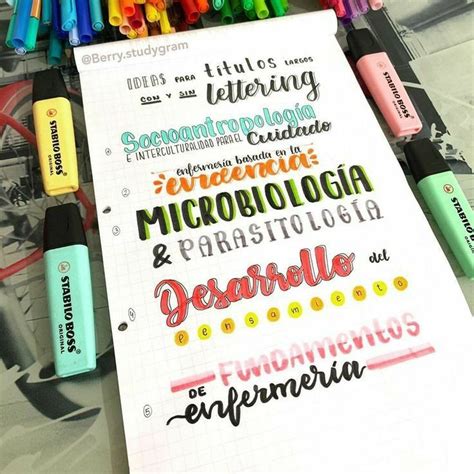 @Berry.studygram
IDEAS PARA títulos LARGOS
CON Y SIN lettering
1
Socioantropología
E INTERCULTURALIDAD PARA EL Cuidado
2
enfermería basada en la
evidencia
3
MICROBIOLOGÍA
& PARASITOLOGÍA
4
Desarrollo del
pensamiento
5
FUNDAMENTOS
DE enfermería
STABILO BOSS
ORIGINAL
STABILO BOSS
ORIGINAL
STABILO BOSS
ORIGINAL
STABILO BOSS
ORIGINAL